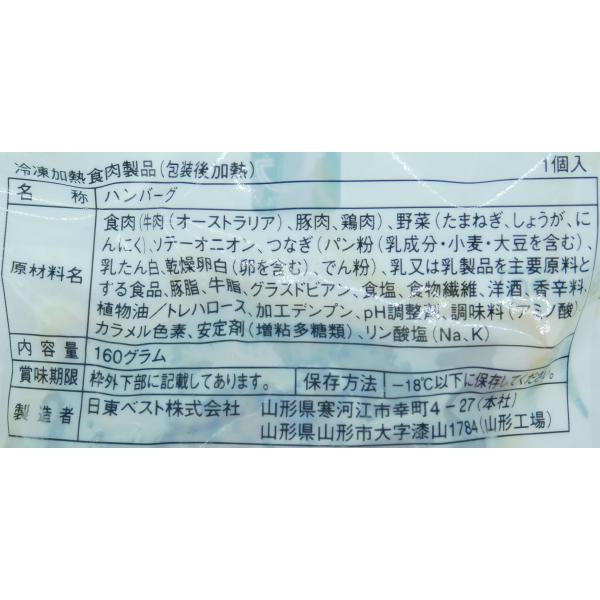 冷凍加熱食肉製品(包装後加熱) 1個入
名称 ハンバーグ
原材料名 食肉(牛肉(オーストラリア)、豚肉、鶏肉)、野菜(たまねぎ、しょうが、に
んにく)、ソテーオニオン、つなぎ(パン粉(乳成分・小麦・大豆を含む)、
乳たん白、乾燥卵白(卵を含む)、でん粉)、乳又は乳製品を主要原料と
する食品、豚脂、牛脂、グラスドビアン、食塩、食物繊維、洋酒、香辛料、
植物油/トレハロース、加工デンプン、pH調整剤、調味料(アミノ酸)、
カラメル色素、安定剤(増粘多糖類)、リン酸塩(Na、K)
内容量 160グラム
賞味期限 枠外下部に記載してあります。 保存方法 −18℃以下に保存してください。
製造者 日東ベスト株式会社 山形県寒河江市幸町4−27(本社)
山形県山形市大字漆山1784(山形工場)